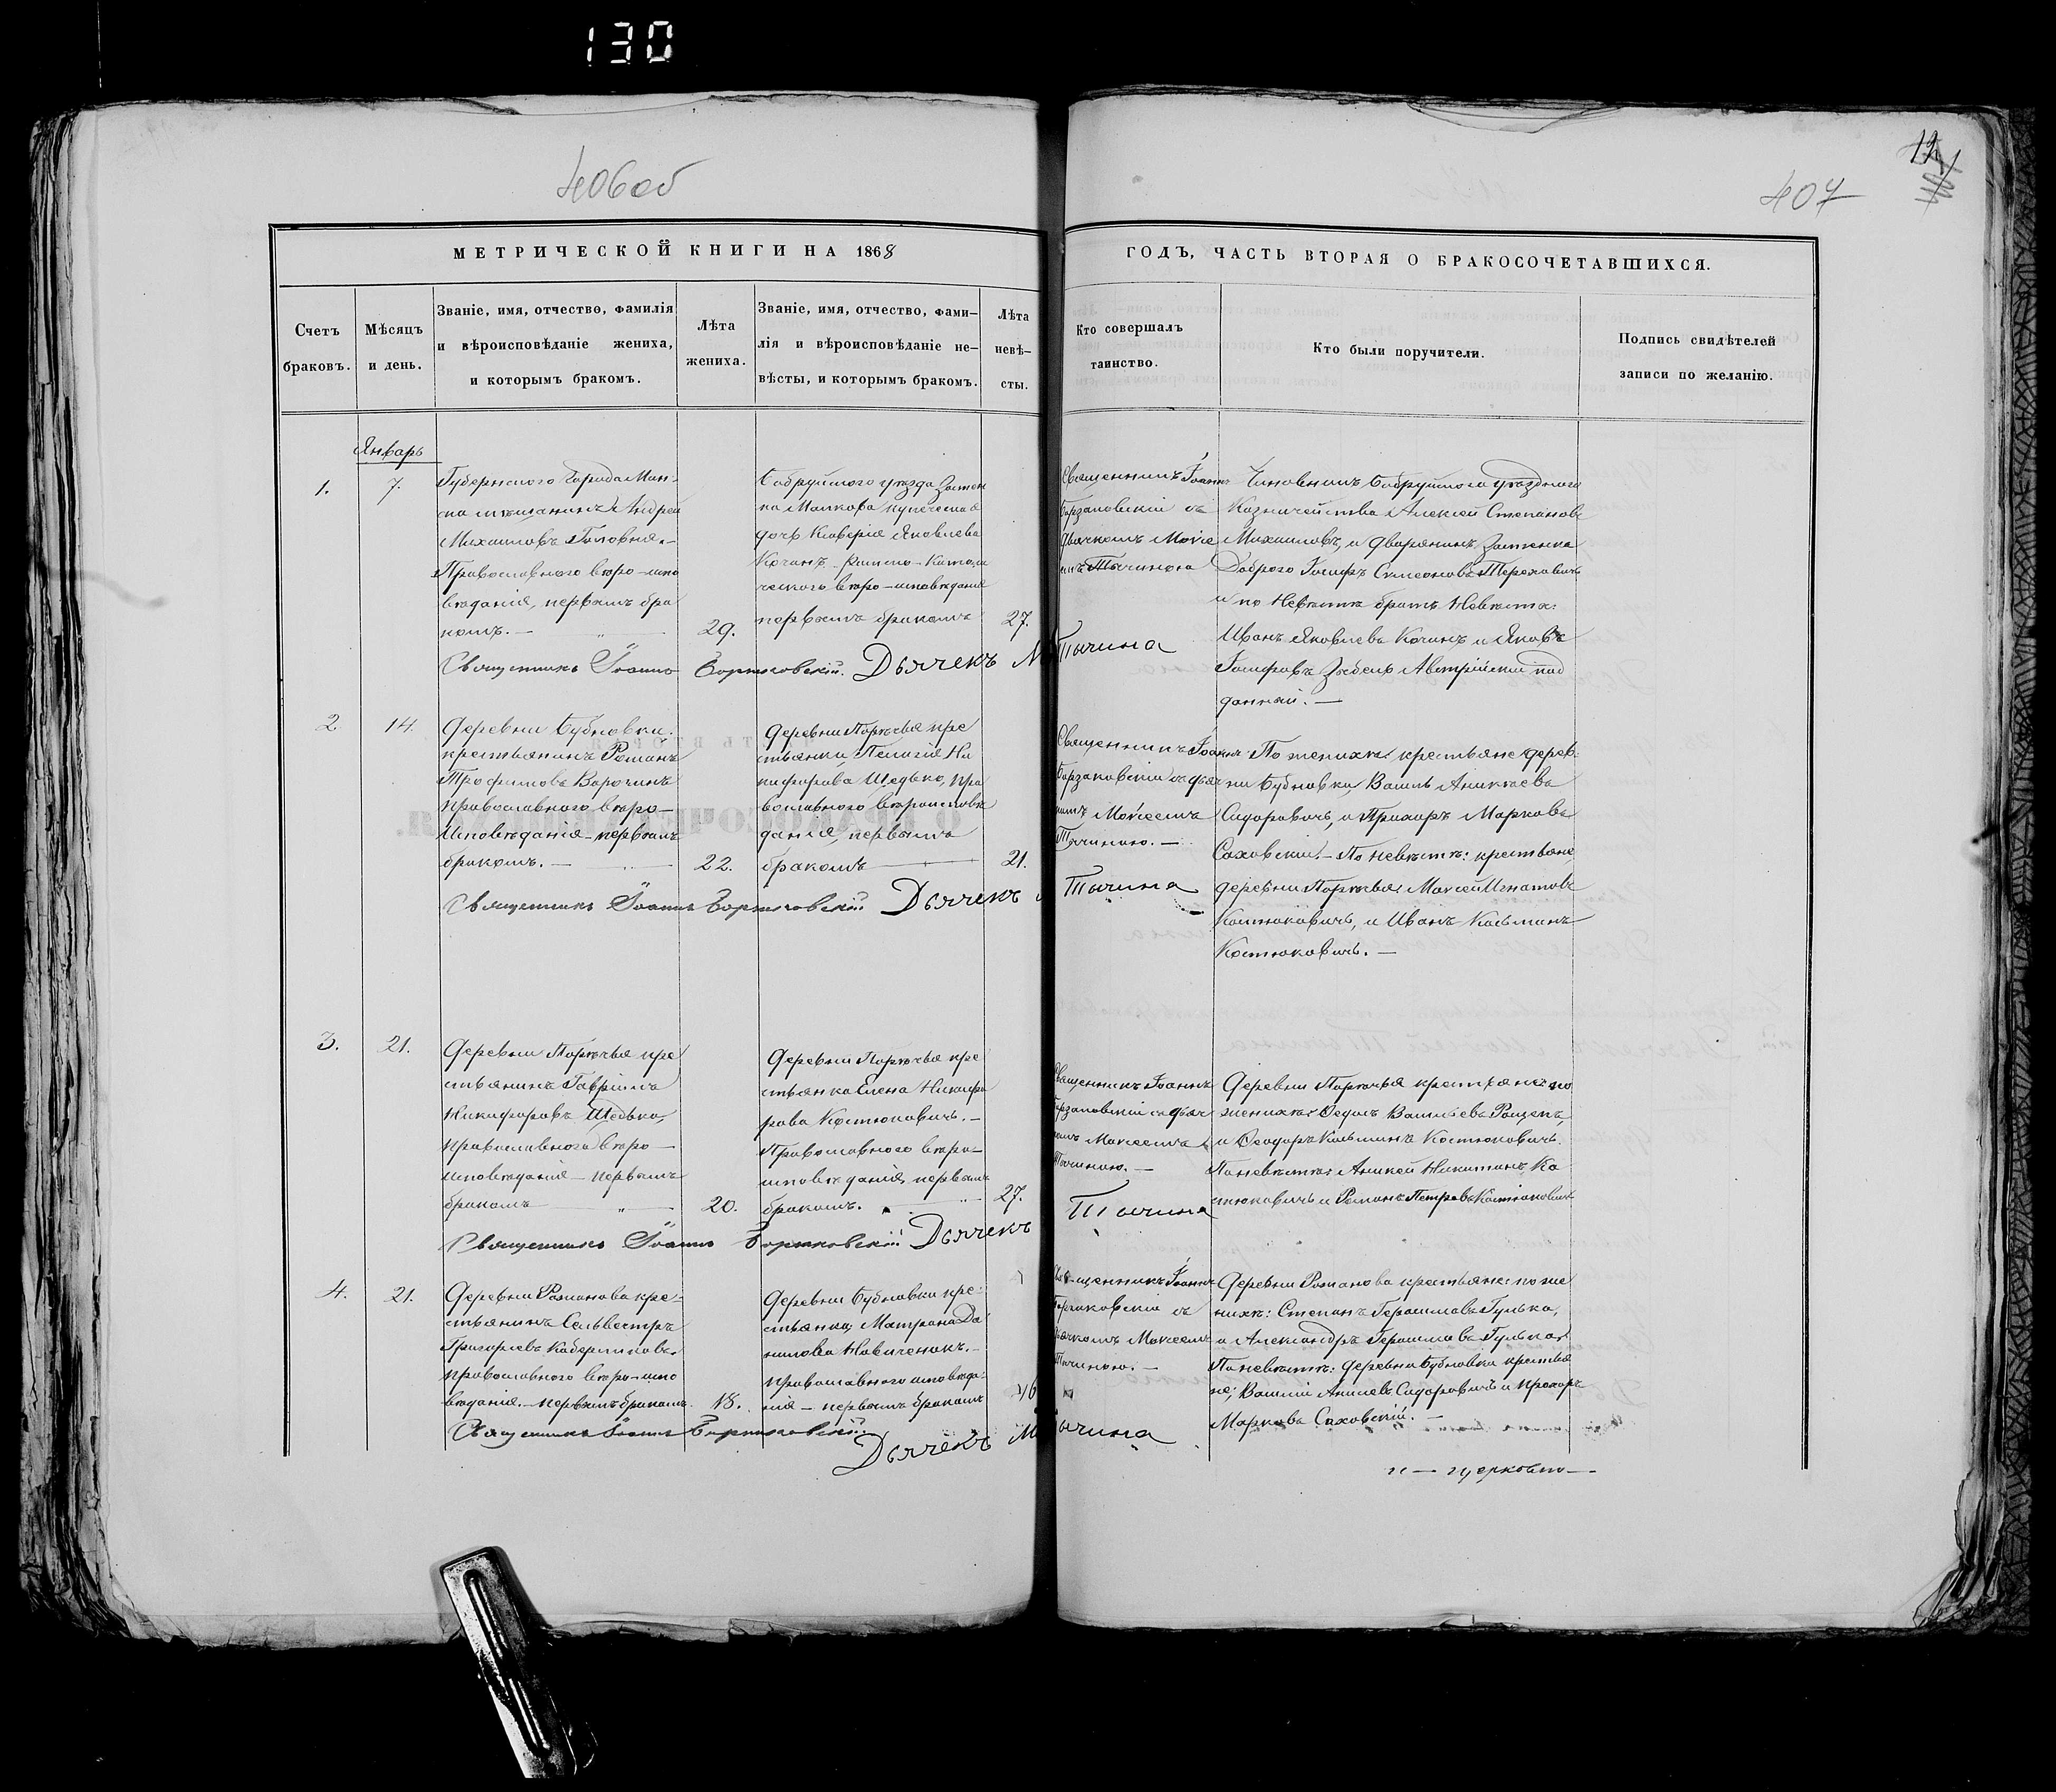 130
406об
12
407
МЕТРИЧЕСКОЙ КНИГИ НА 1868
ГОДЪ, ЧАСТЬ ВТОРАЯ О БРАКОСОЧЕТАВШИХСЯ.
Счетъ
браковъ.
Мѣсяцъ
и день.
Званіе, имя, отчество, фамилія
и вѣроисповѣданіе жениха,
и которымъ бракомъ.
Лѣта
жениха.
Званіе, имя, отчество, фами-
лія и вѣроисповѣданіе не-
вѣсты, и которымъ бракомъ.
Лѣта
невѣ-
сты.
Кто совершалъ
таинство.
Кто были поручители.
Подпись свидѣтелей
записи по желанію.
Январь
1.
7.
Губернского города Мин-
ска мѣщанинъ Андрей
Михаиловъ Головня.-
Православного вѣро-испо
вѣданія, первымъ бра
комъ. —
29.
Бобруйского уѣзда застен
ка купеческая
дочь Ксаверія Яковлева
Кочанъ. Римско-Католи
ческого вѣро-исповѣданія
первымъ бракомъ
27.
Священникъ Іоаннъ
съ
дьячкомъ Моисе
емъ Тычиною
Чиновникъ Бобруйского уѣздного
Казначейства Алексей Степановъ
Михаиловъ, и дворянинъ застенка
Доброго Іосифъ Семеоновъ Тереховичъ
и по Невѣстѣ братъ Невѣсты:
Иванъ Яковлевъ Кочанъ и Яковъ
Іосифовъ Австрійский под
данный. —
Священникъ Іоаннъ Дьячекъ М Тычина
2.
14.
Деревни Бубновки
крестьянинъ Романъ
Трофимовъ Ворочинъ
православного вѣро-
исповѣданія - первымъ
бракомъ. —
22.
Деревни Порѣчья кре
стьянка Пелагія Ни
кифорова Шедько, пра
вославного вѣроисповѣ
данія, первымъ
бракомъ
21.
Священникъ Іоаннъ
съ дьяч
комъ Моисеемъ
Тычиною. —
По женихѣ крестьяне дерев
ни Бубновки Василь Аникѣевъ
Сидоровичъ, и Прохоръ Марковъ
Саховскій. - По невѣстѣ: крестьяне
деревни Порѣчья Моисей Игнатовъ
Костюковичъ, и Иванъ Касьянъ
Костюковичъ. —
Священникъ Іоаннъ Дьячекъ Тычина
3.
21.
Деревни Порѣчья кре
стьянинъ Гавріилъ
Никифоровъ Шедько,
православного вѣро-
исповѣданія - первымъ
бракомъ
20.
Деревни Порѣчья кре
стьянка Елена Никифо
рова Костюковичъ. -
Православного вѣро-
исповѣданія, первымъ
бракомъ.
27.
Священникъ Іоаннъ
съ дьяч
комъ Моисеемъ
Тычиною. —
Деревни Порѣчья крестьяне по
женихѣ Ѳедоръ Васильевъ Рощепъ,
и Ѳеодоръ Касьянъ Костюковичъ.
По невѣстѣ: Аникей Никитинъ Ко
стюковичъ и Романъ Петровъ Костюковичъ
Священникъ Іоаннъ Дьячекъ Тычина
4.
21.
Деревни Романова кре-
стьянинъ Сельвестръ
Григорьевъ
православного вѣро-испо
вѣданія. - первымъ бракомъ.
18.
Деревни Бубновки кре-
стьянка Матрона Да
нилова Новиченокъ. -
православного исповѣда-
нія - первымъ бракомъ
Священникъ Іоаннъ
съ
дьячкомъ Моисеемъ
Тычиною. —
Деревни Романова крестьяне: по же
нихѣ: Степанъ Герасимовъ Гулько,
и Александръ Герасимовъ Гулько.
По невѣстѣ: деревни Бубновки крестья
не, Василій Сидоровичъ и Прохоръ
Марковъ Саховскій. —
Священникъ Іоаннъ
Дьячекъ М Тычина